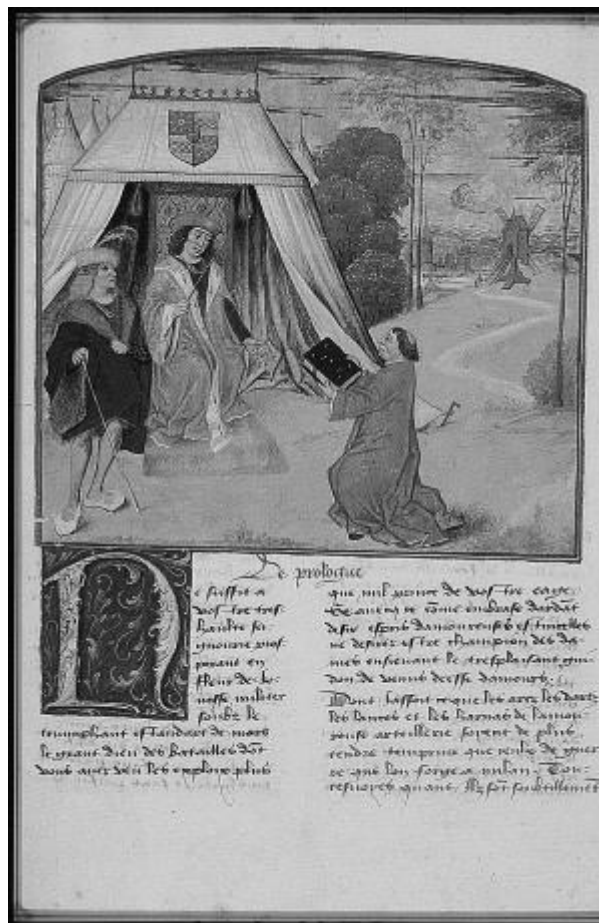 Le prologue
e suffist a
vostre tres
haulte sei
gnourie pros
perant en
fleur de Je
nesse militer
soubz le
triumphant estandart de mars
le grant dieu des batailles dot
vous avez veu les exploix plus
que nul prince de vostre eage
Se avecqz ce come embrase dardat
desir espris damoureuses estincelles
ne desirez estre champion des da
mes ensuivant le tresplaisant gui
don de venus deesse damours.
Dont lassoit ce que les arcz les dartz
les lances et les harnas de lamou
reuse artillerie soyent de plus
tendre tempre que ceulx de guer
re que lon forge a milan. Tou
tesvoyes quant Ilz sont soubtillement